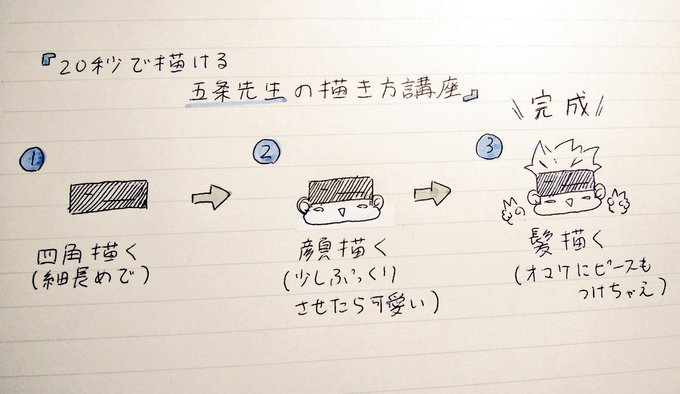 『20秒で描ける
五条先生の描き方講座』
\\完成//
①
②
③
四角描く
(細長めで)
顔描く
(少しぷっくり
させたら可愛い)
髪描く
(オマケにピースも
つけちゃえ)